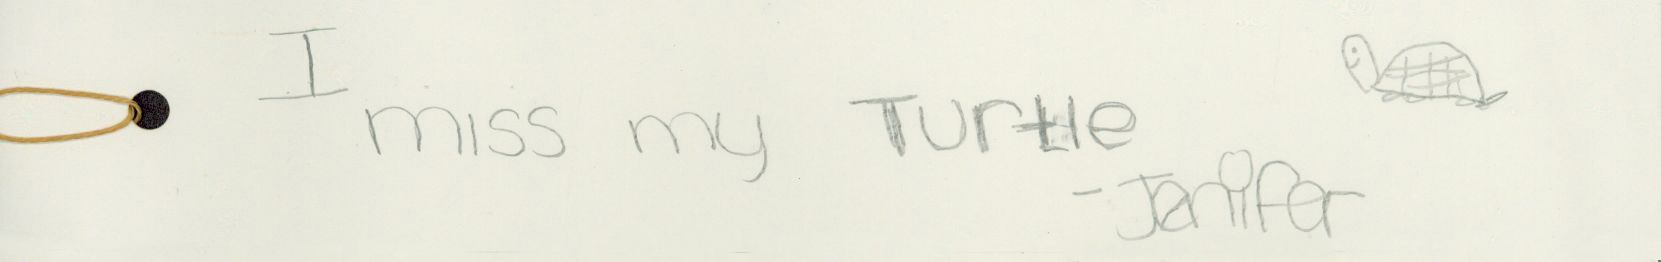 I miss my Turtle
-Jenifer